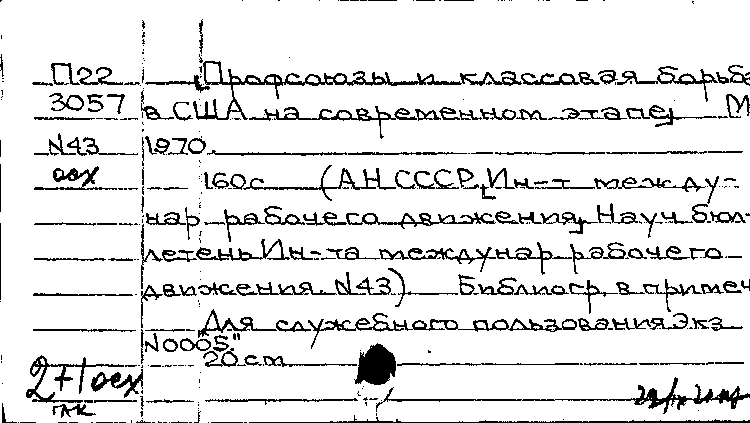 П22 Профсоюзы и классовая борьба
3057 в США на современном этапе, М
N43 1970.
осх 160с (АН СССР, Ин-т между-
нар. рабочего движения, Науч бюл-
летень Ин-та междунар. рабочего
движения. N43). Библиогр. в примеч
Для служебного пользования. Экз
N0005."
20 см
2+1осх
ГАК